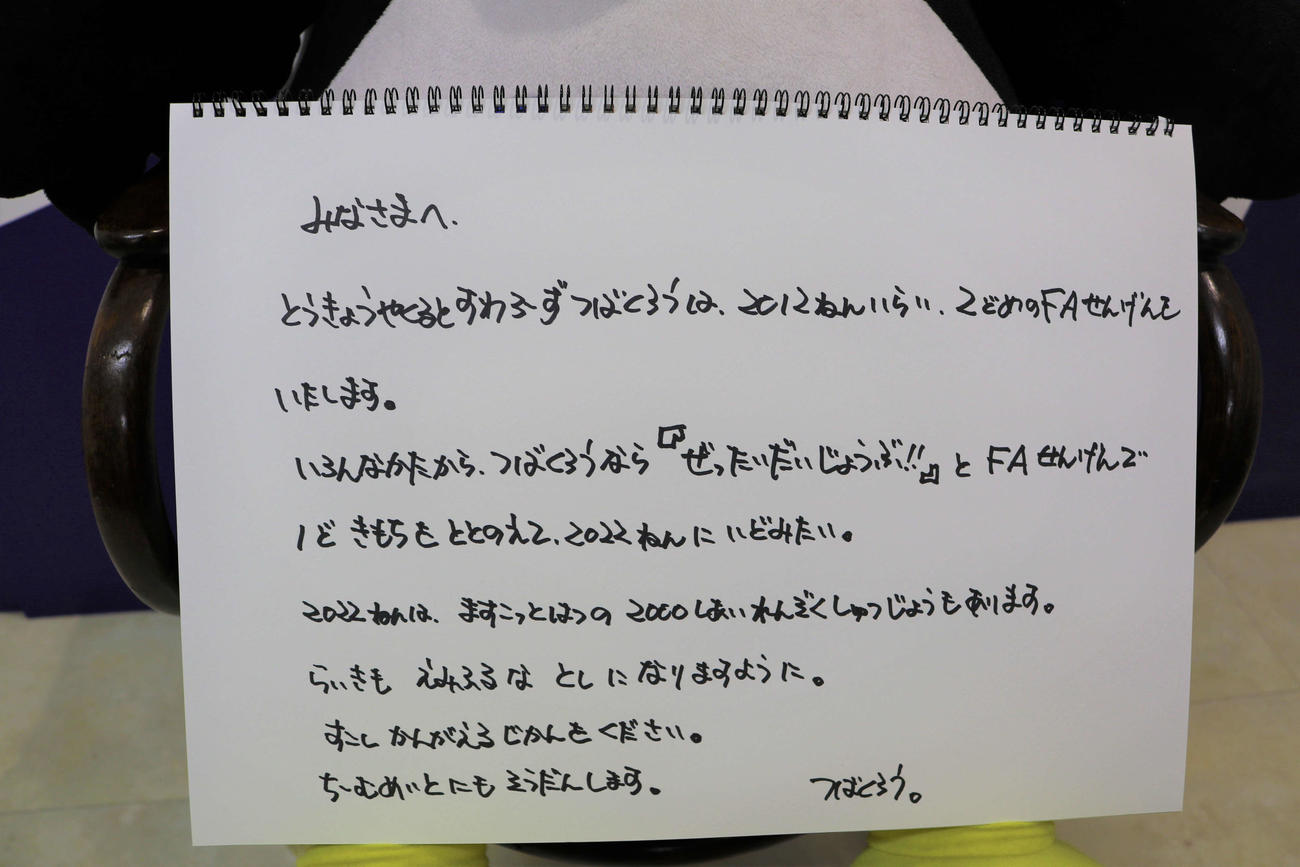 みなさまへ.
とうきょうやくるとすわろーずつばくろうは、2012ねんいらい、2どめのFAせんげんを
いたします。
いろんなかたから、つばくろうなら『ぜったいだいじょうぶ!!』とFAせんげんで
1ど きもちをととのえて、2022ねんにいどみたい。
2022ねんは、ますこっとはつの2000しあいれんぞくしゅつじょうもあります。
らいきも えみふるな としになりますように。
すこしかんがえるじかんをください。
ちーむめいとにもそうだんします。 つばくろう。